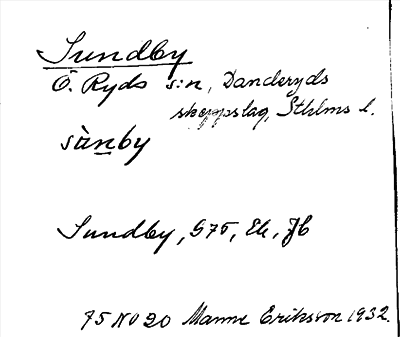 Sundby
Ö. Ryds s:n, Danderyds
skeppslag, Sthlms l.
sànby
Sundby, G75, Ek, Jb
75 NO 20 Manne Eriksson 1932.